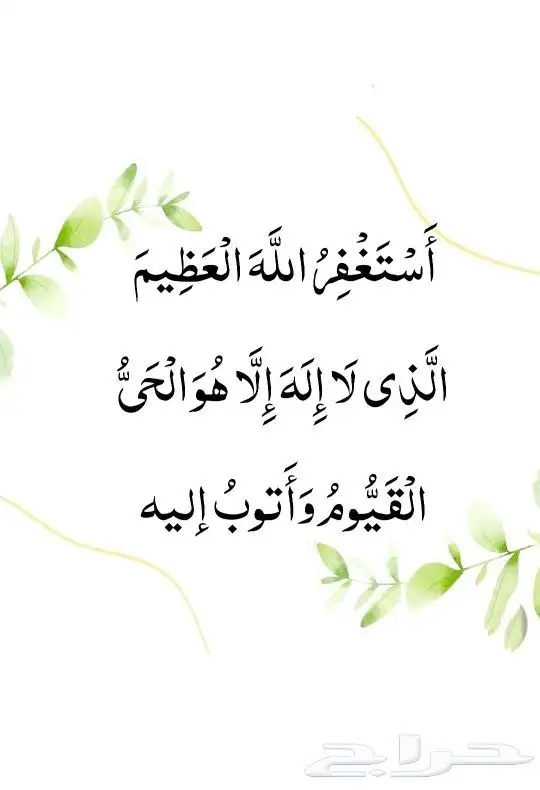 أَسْتَغْفِرُ اللَّهَ الْعَظِيمَ
الَّذِى لَا إِلَهَ إِلَّا هُوَ الْحَىُّ
الْقَيُّومُ وَأَتوبُ إليه
حراج